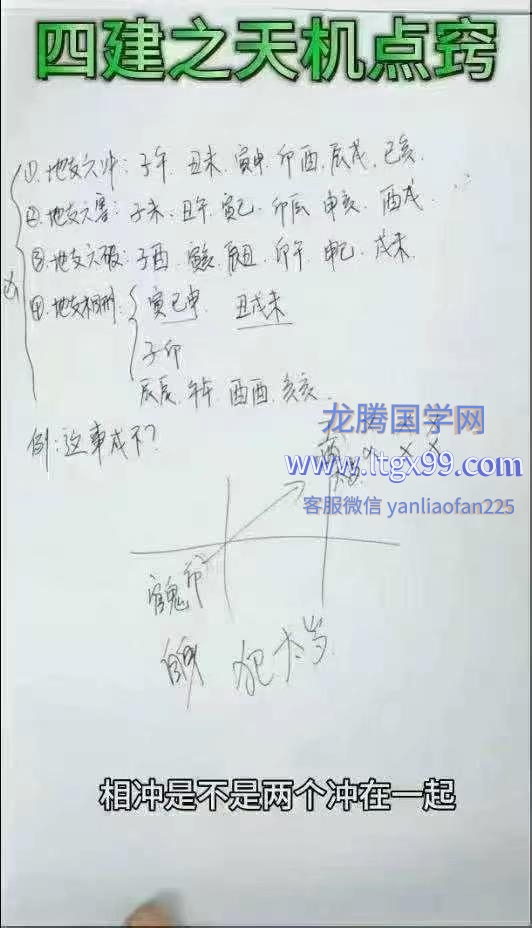 四建之天机点窍
①.地支六冲：子午.丑未.寅申.卯酉.辰戌.巳亥.
②.地支六害：子未.丑午.寅巳.卯辰.申亥.酉戌.
③.地支六破：子酉.寅亥.辰丑.卯午.申巳.戌未.
④.地支相刑：寅巳申 丑戌未
子卯
辰辰.午午.酉酉.亥亥.
例：这事成不？
龙腾国学网
www.ltgx99.com
客服微信 yanliaofan225
官鬼 卯
犯太岁
相冲是不是两个冲在一起